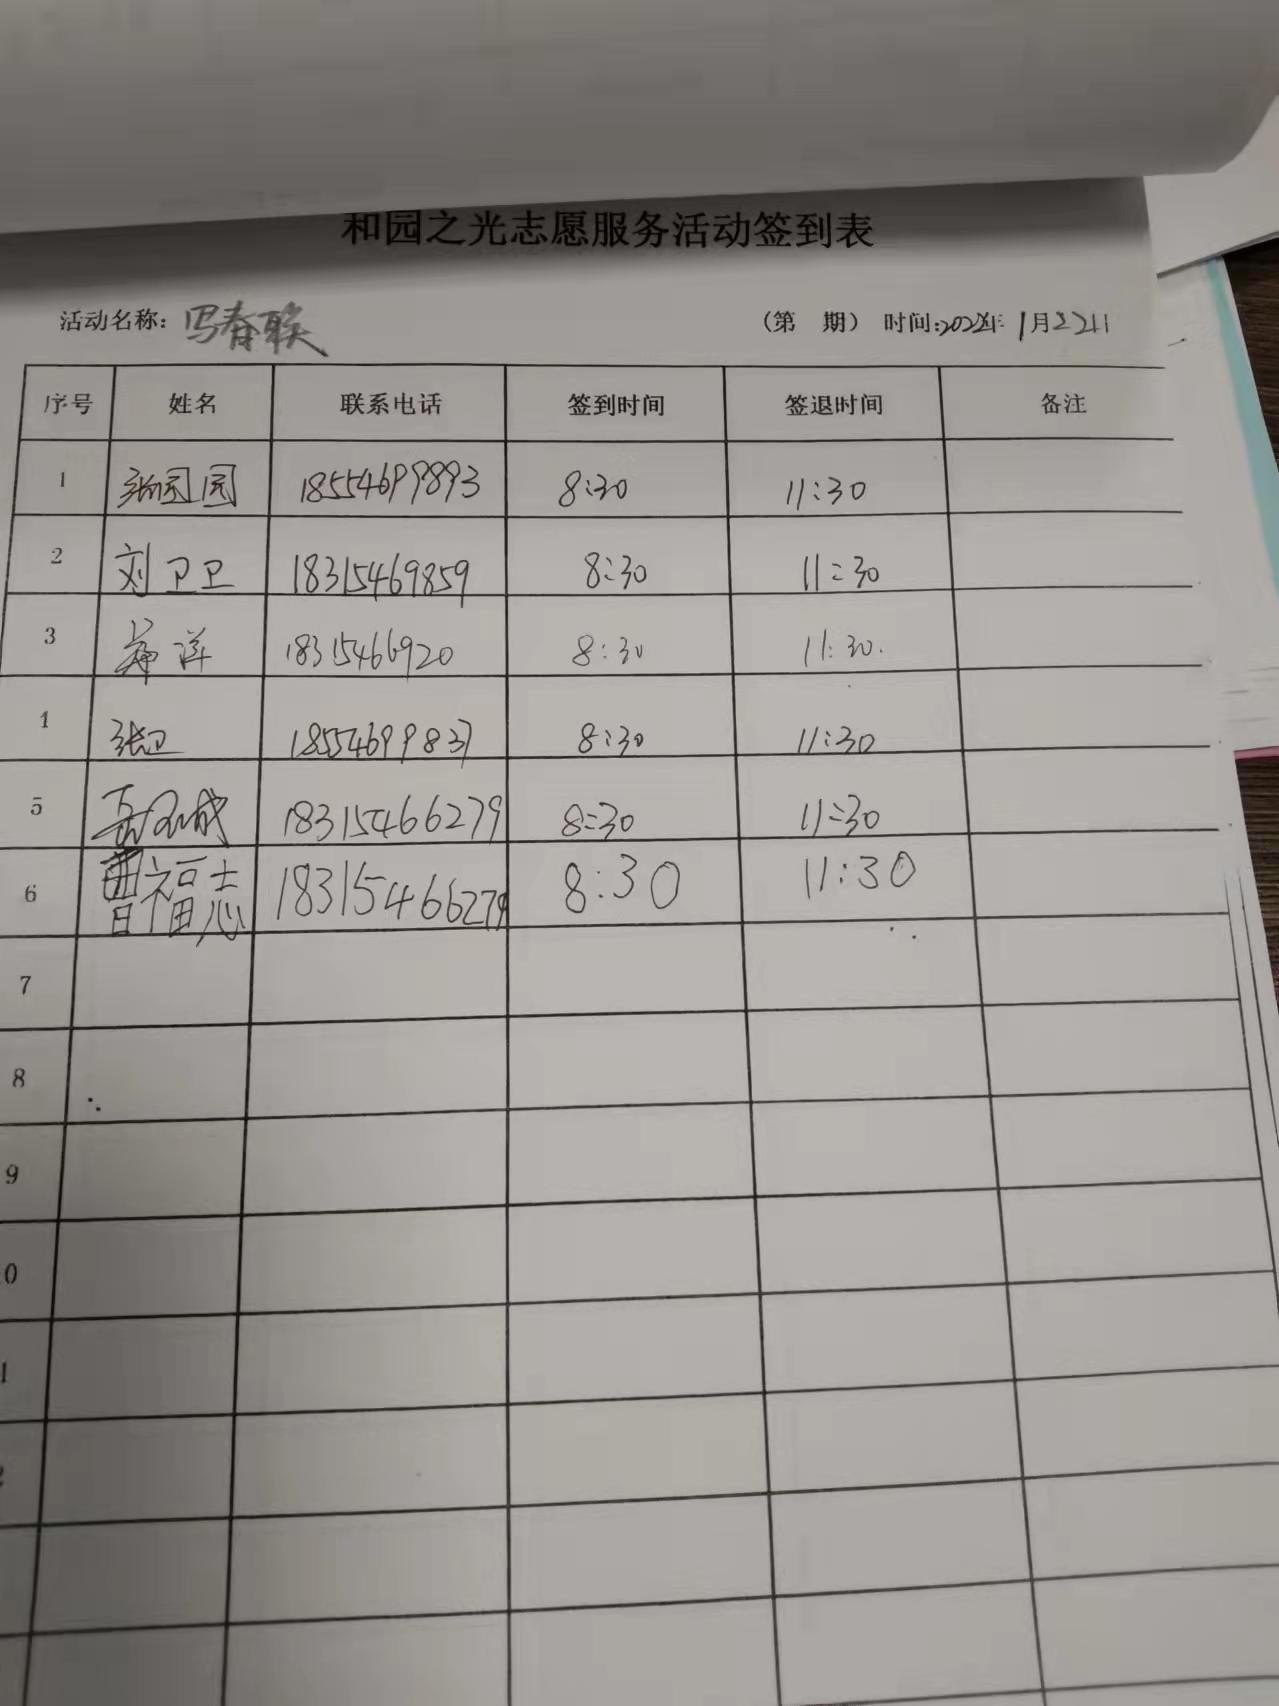 和园之光志愿服务活动签到表
活动名称：写春联 （第 期） 时间：年1月22日
序号 姓名 联系电话 签到时间 签退时间 备注
1 张园园 18554699893 8:30 11:30
2 刘卫卫 18315469859 8:30 11:30
3 洋 18315466920 8:30 11:30.
4 张卫 18554699837 8:30 11:30
5 18315466279 8:30 11:30
6 曹福志 18315466279 8:30 11:30
7
8
9
0
1
2